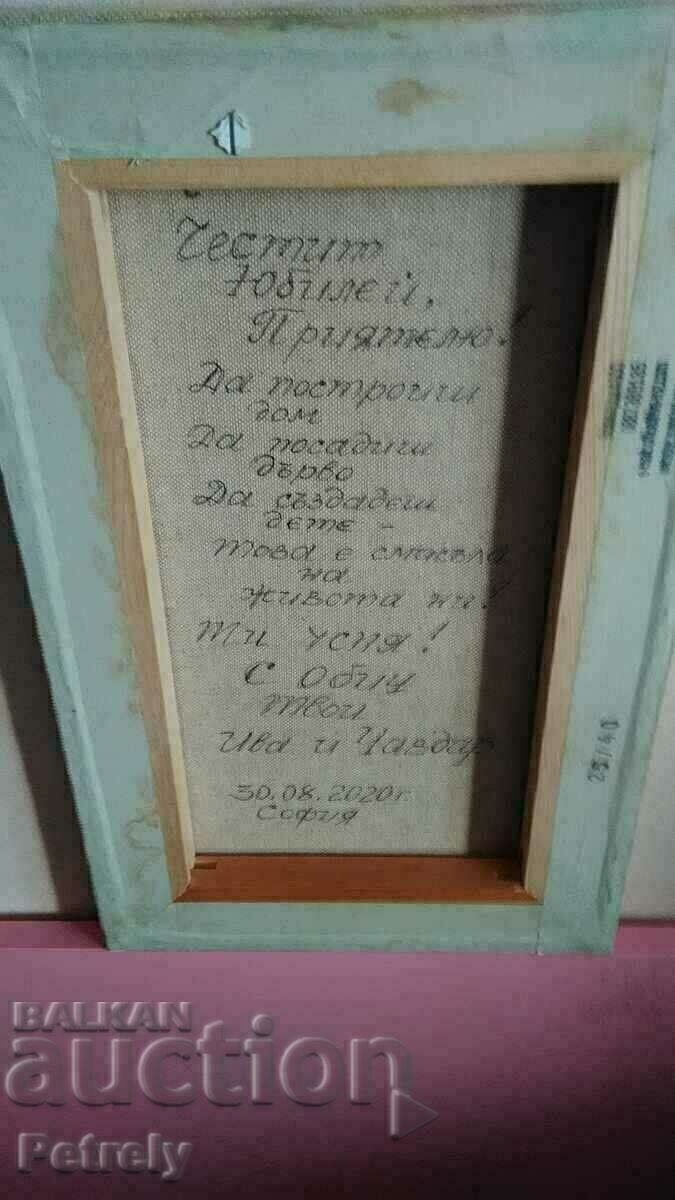 Честит
Юбилей,
Приятелю!
Да построиш
дом
Да посадиш
дърво
Да създадеш
дете -
това е смисъла
на
живота ни!
Ти успя!
С Обич
твои
Ива и Чавдар
30.08.2020г.
София
BALKAN
auction
Petrely